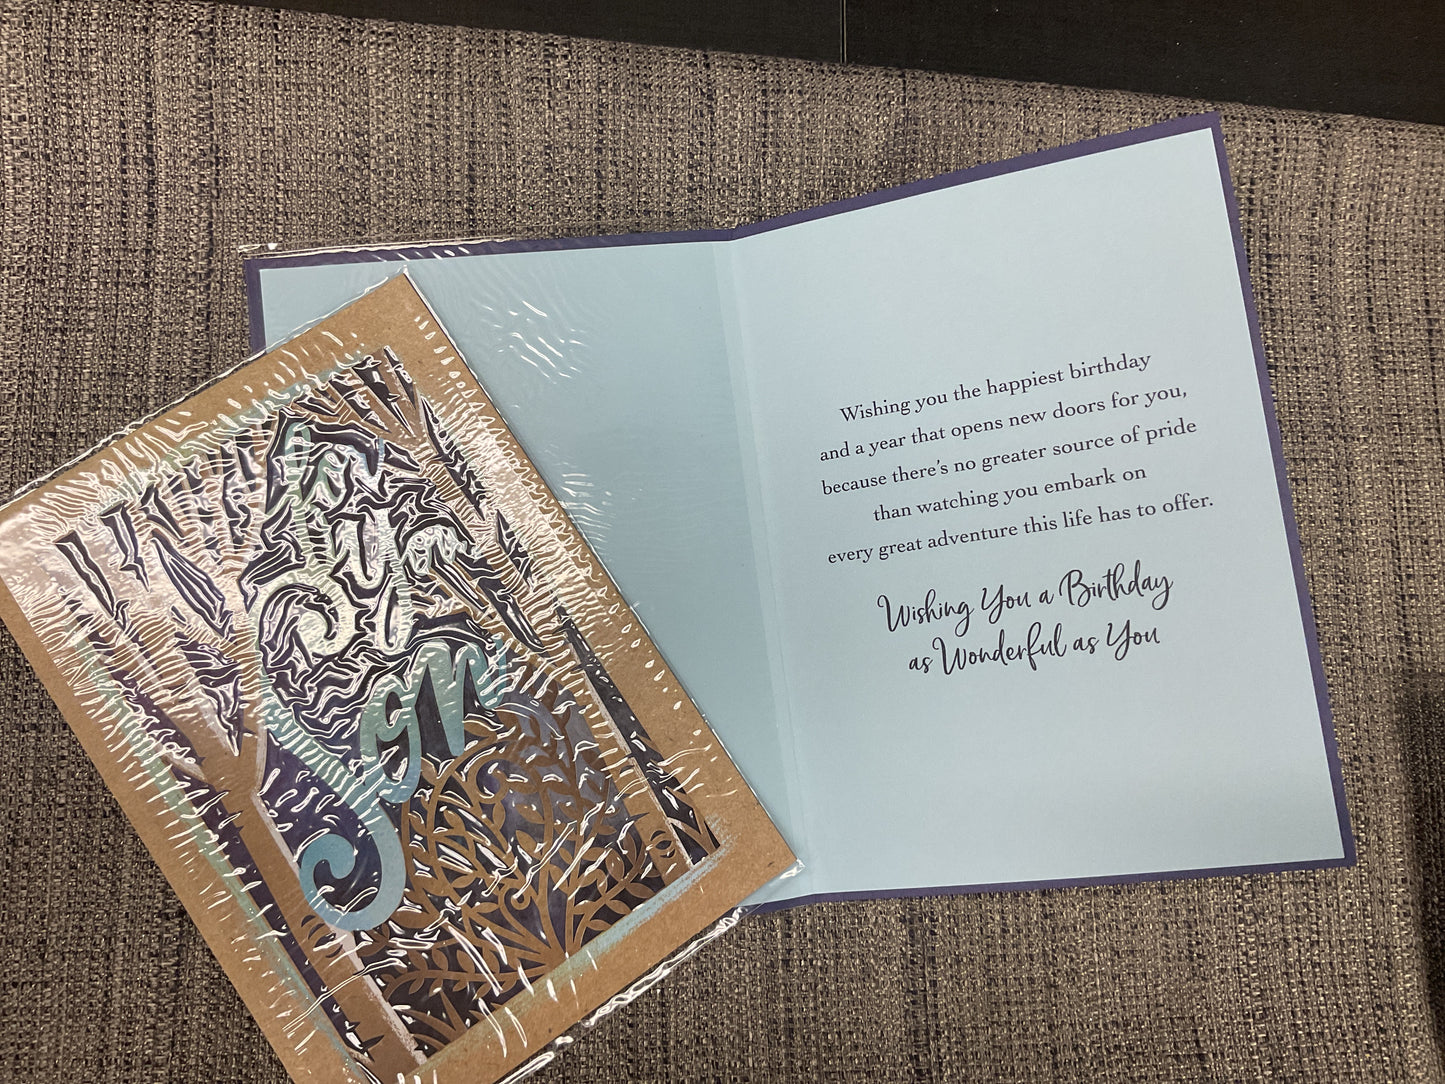 For
Our
Son
Wishing you the happiest birthday
and a year that opens new doors for you,
because there's no greater source of pride
than watching you embark on
every great adventure this life has to offer.
Wishing You a Birthday
as Wonderful as You